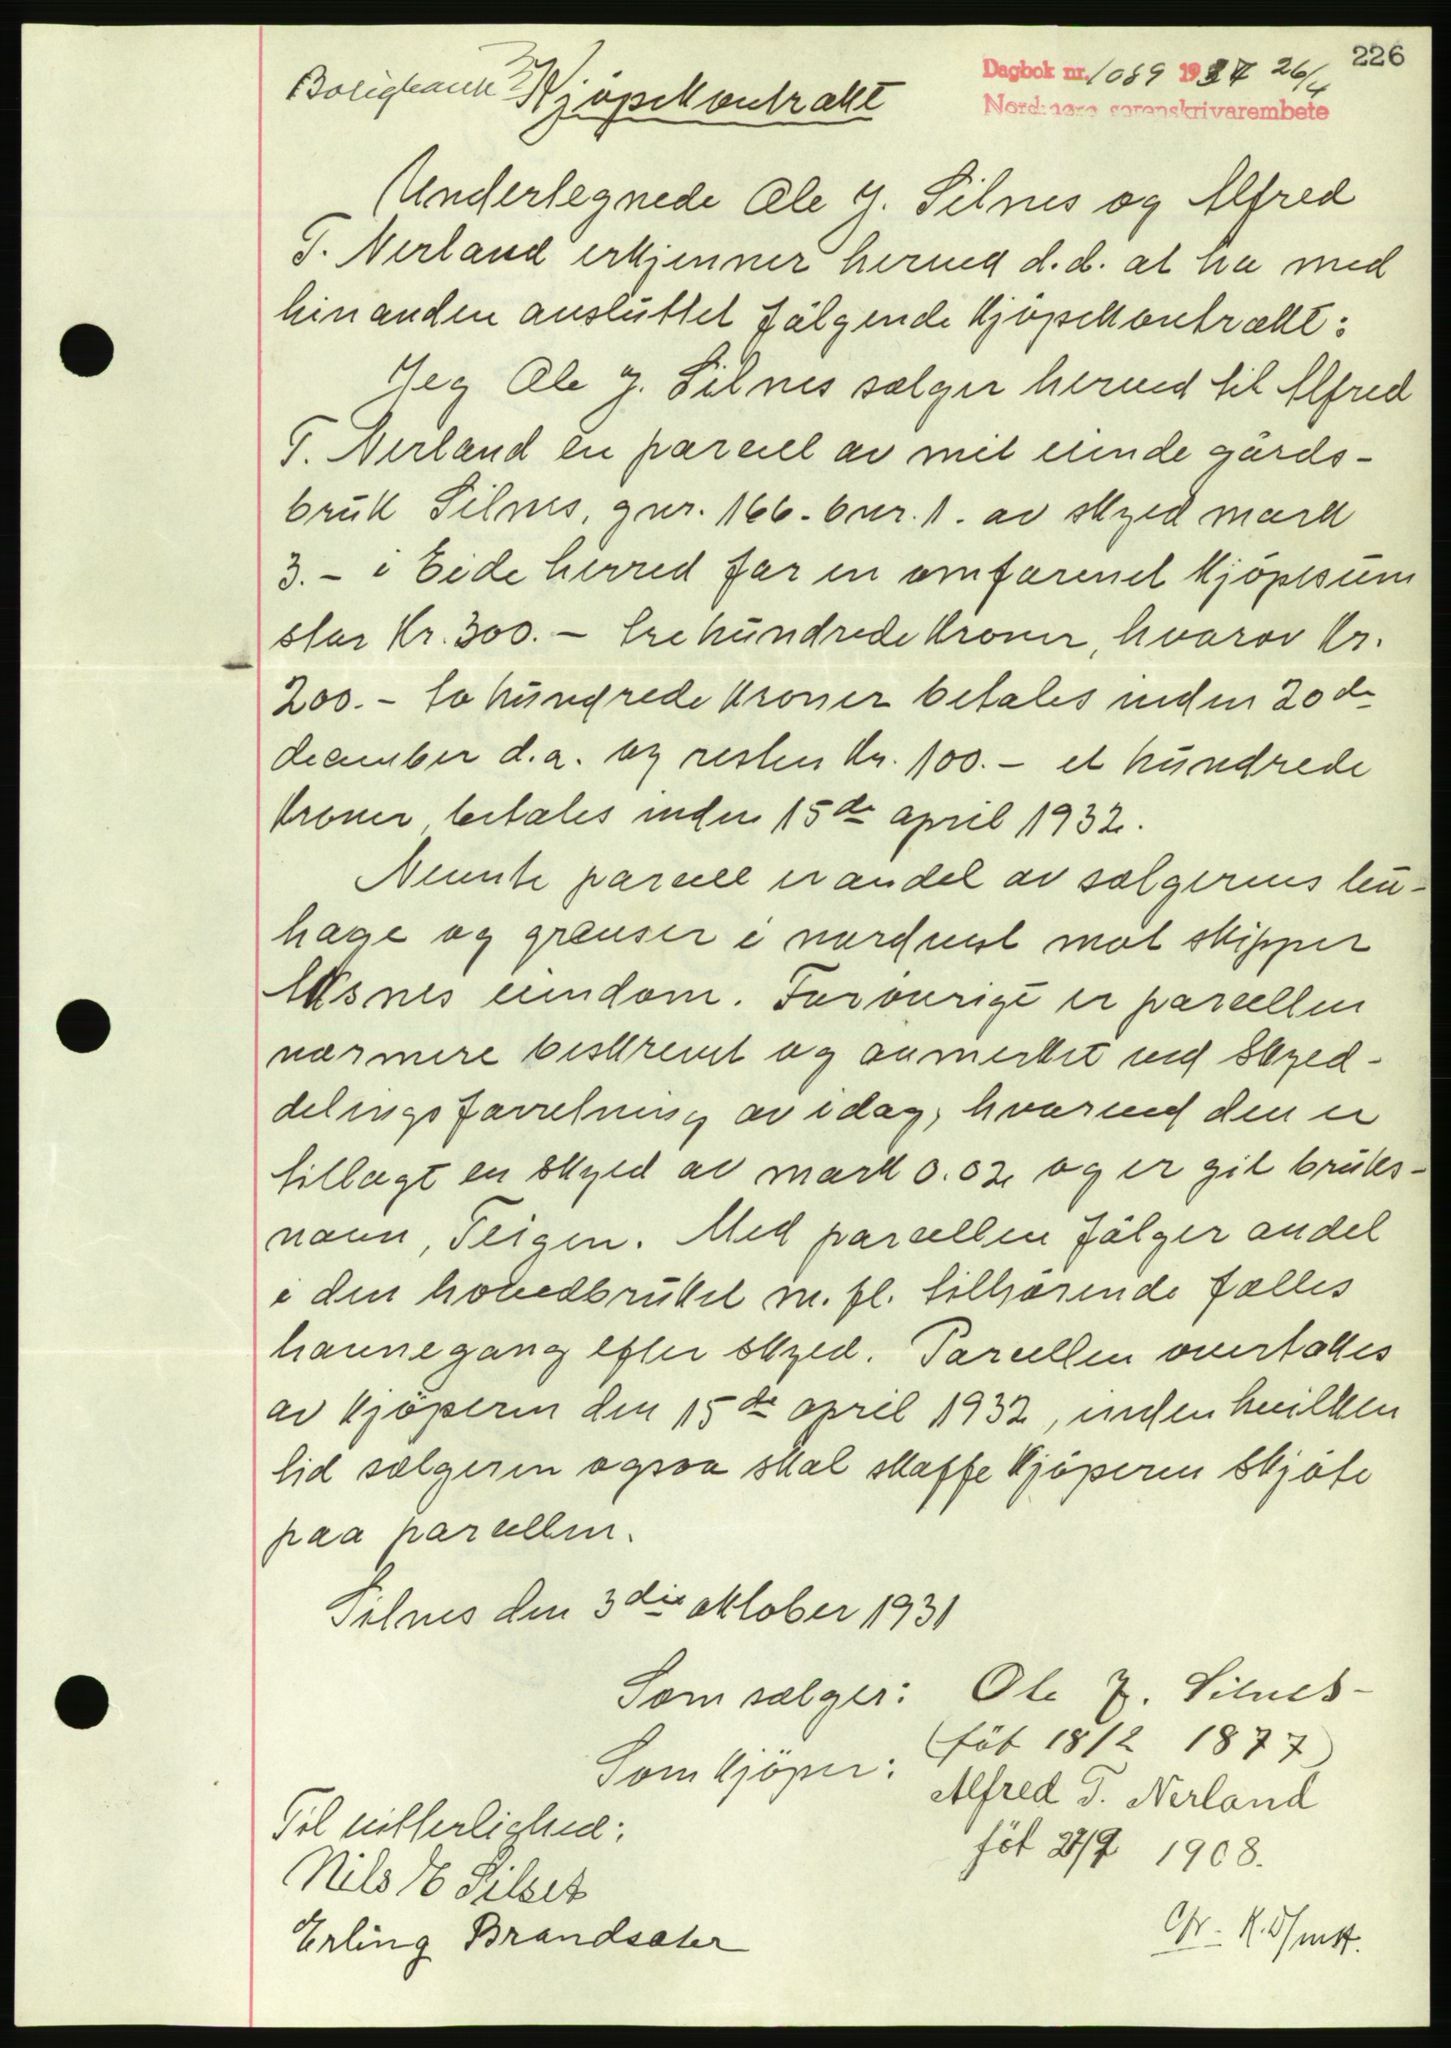 226
Dagbok nr. 1089 1937 26/4
Nordmøre sorenskrivarembete
Boligbank
Kjöpekontrakt
Undertegnede Ole J. Silnes og Alfred
T. Nerland erkjenner herved d.d. at ha med
hinanden avsluttet fölgende kjöpekontrakt:
Jeg Ole J. Silnes sælger herved til Alfred
T. Nerland en parcell av mit eiende gårds-
bruk Silnes, gnr. 166. bnr. 1. av skyld mark
3.- i Eide herred for en omforenet kjöpesum
stor kr. 300.- tre hundrede kroner, hvorav kr.
200.- to hundrede kroner betales inden 20de
december d.a. og resten kr. 100.- et hundrede
kroner, betales inden 15de april 1932.
Nevnte parcell er andel av sælgerens
hage og grenser i nordvest mot skipper
eiendom. Forövrigt er parcellen
nærmere beskrevet og avmerket ved skyld-
delingsforretning av idag, hvorved den er
tillagt en skyld av mark 0.02 og er git bruks-
navn, Teigen. Med parcellen fölger andel
i den hovedbruket m.fl. tilhörende fælles
havnegang efter skyld. Parcellen overtakes
av kjöperen den 15de april 1932, inden hvilken
tid sælgeren ogsaa skal skaffe kjöperen skjöte
paa parcellen.
Silnes den 3die oktober 1931
Som sælger: Ole J. Silnes-
(föt 18/2 1877)
Som kjöper: Alfred T. Nerland
föt 27/9 1908.
Til vitterlighed:
Nils E Silset
Erling Brandsæter